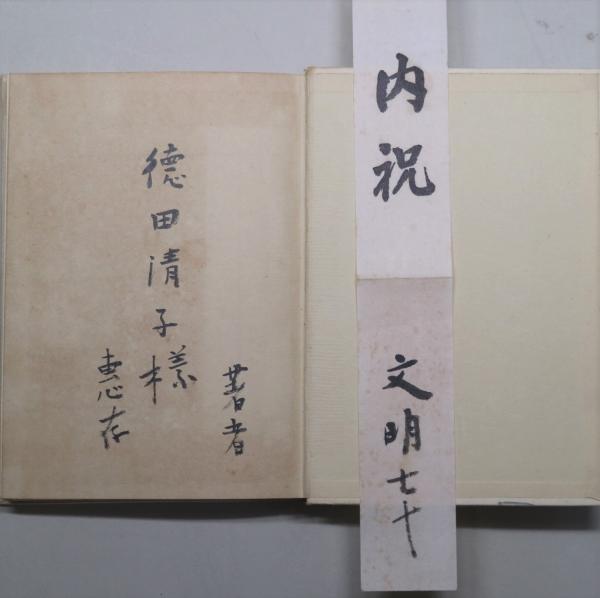 内祝
文明七十
著者
德田清子様
恵存